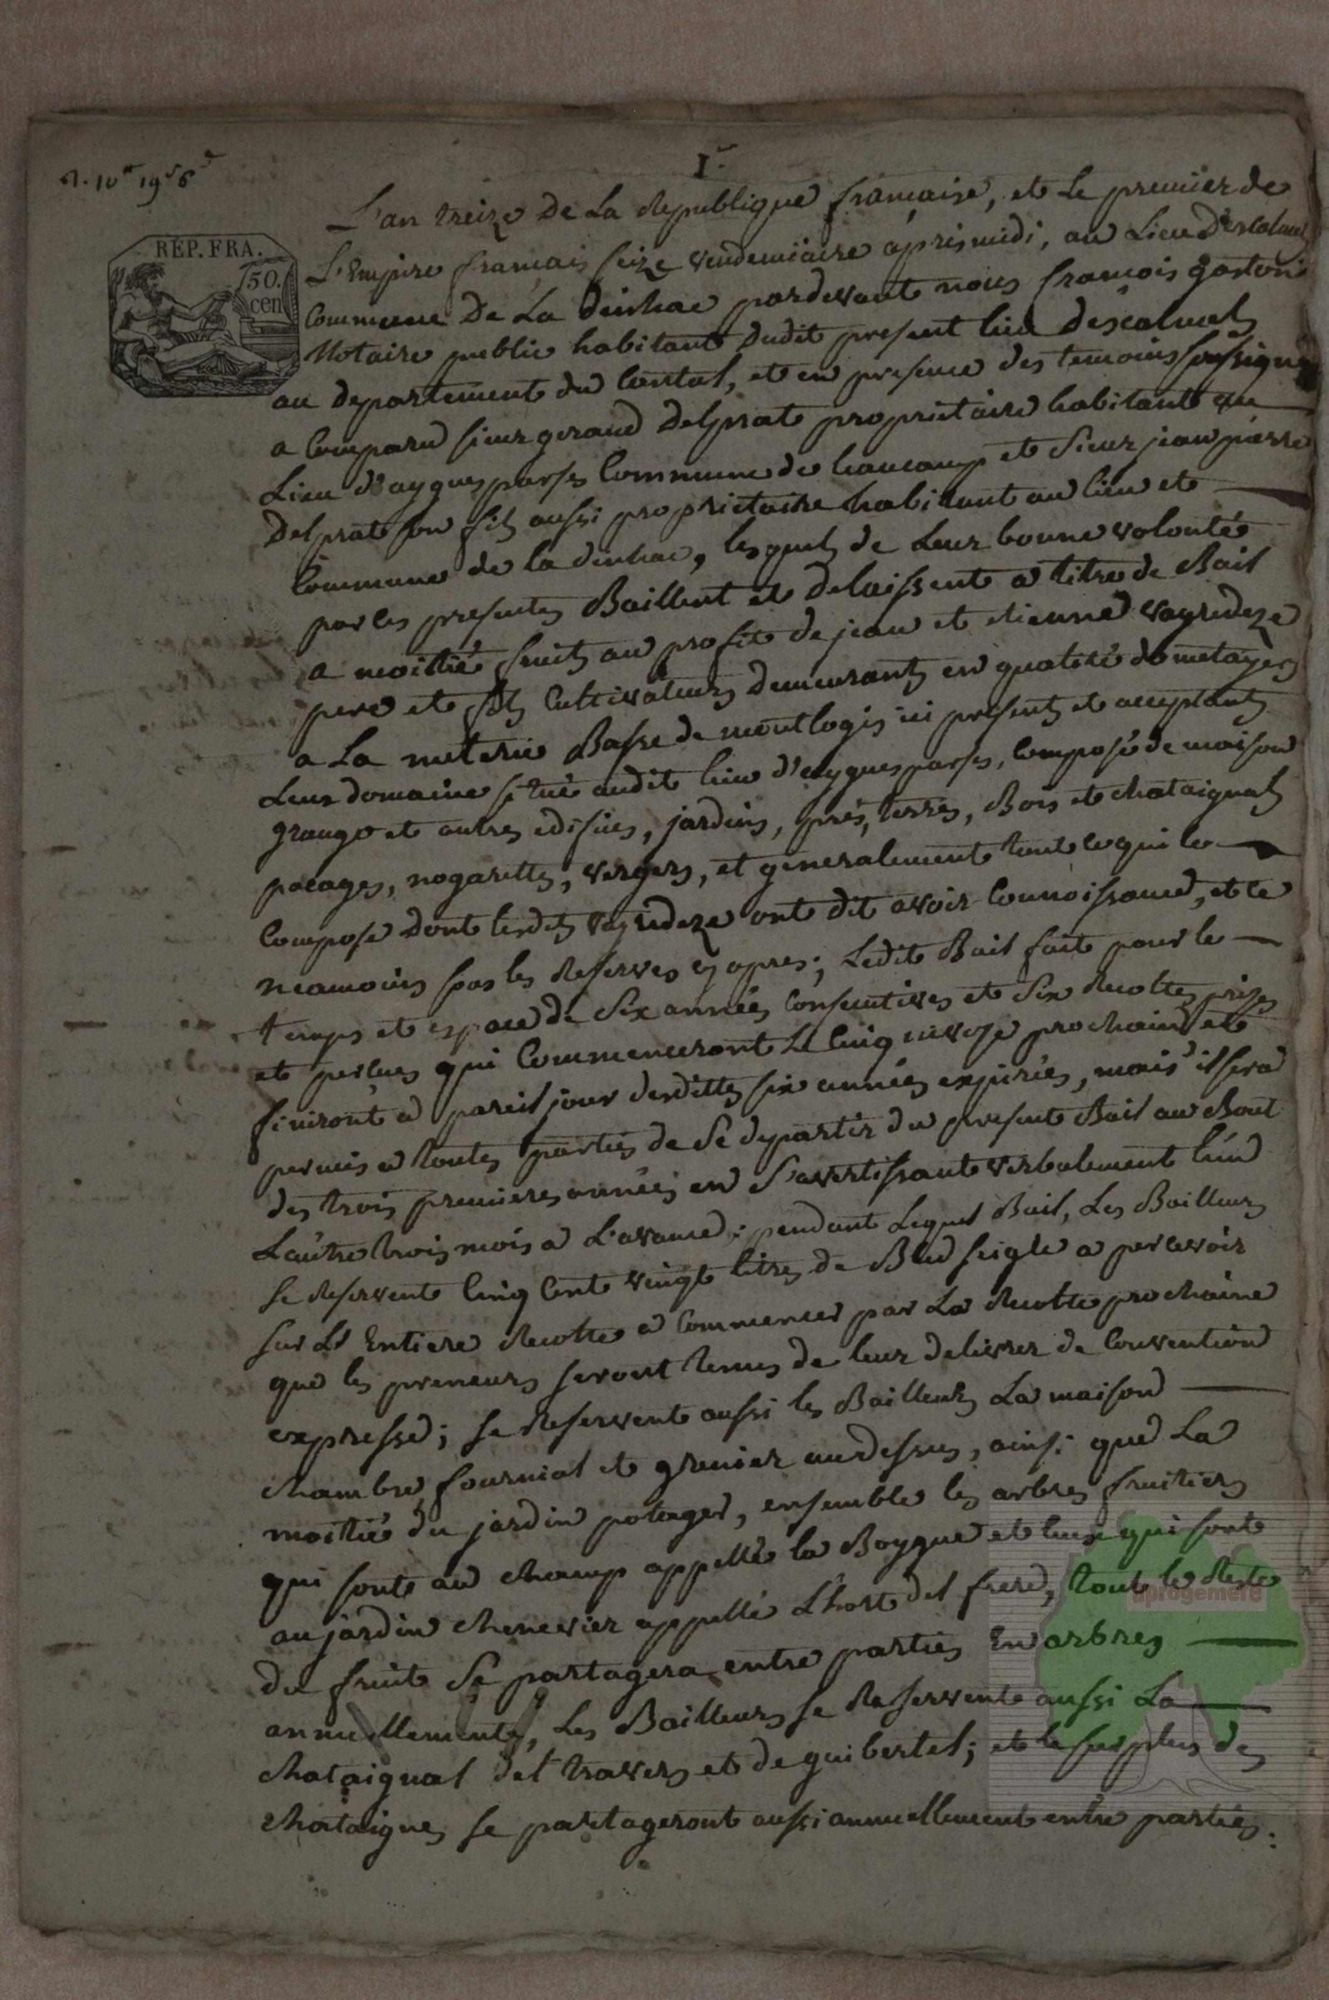 1er
RÉP. FRA.
50.
cen
L'an treize de la Republique française, et le premier de
L'Empire français seize vendemiaire apres midi, au Lieu Descalmels
Commune De La dinhac pardevant nous françois gaston
Notaire public habitant dudit present lieu descalmels
au departement du Cantal, et en presence des temoins soussignes
a Comparu sieur geraud Delprat proprietaire habitant au
Lieu d'ayguesparses Commune de et sieur jean pierre
Delprat son fils aussi proprietaire habitant au lieu et
Commune de la dinhac, lesquels de leur bonne volonté
par les presentes Baillent et delaissent a titre de Bail
a moitié fruits au profit de jean et etienne vayredeze
pere et fils Cultivateurs demeurants en qualité de metayers
a La meterie Basse de montlogis ici presents et acceptants
Leur domaine situé audit lieu d'ayguesparses, Composé de maison
grange et autres edifices, jardins, prés, terres, Bois et chataignals
pacages, nogarettes, vergers, et generalement tout ce qui le
Compose Dont lesdits vayredeze ont dit avoir Connoissance, et ce
neamoins sous les Reserves cy apres; Ledit Bail fait pour le
temps et espace de Six années Consecutives et Six Recoltes prises
et perçues qui Commenceront Le Cinq nivose prochain et
finiront a pareil jour desdittes six années expirées, mais il sera
permis a toutes parties de Se departir du present Bail au Bout
des trois premieres années en S'avertissant verbalement l'un
L'autre trois mois a L'avance; pendant Lequel Bail, Les Bailleurs
se Reservent Cinq Cent vingt litres de Bled seigle a percevoir
sur L'Entiere Recolte a Commencer par La Recolte prochaine
que les preneurs seront tenus de leur delivrer de Convention
expresse; se Reservent aussi les Bailleurs La maison
chambre fournial et grenier audessus, ainsi que La
moitié du jardin potager, ensemble les arbres fruitiers
qui sont au champ appellé la Boygue et ceux qui sont
au jardin chenevier appellé L'hort del frere, tout le Reste
du fruit Se partagera entre parties En arbres
annuellement, Les Bailleurs se Reservent aussi La
chataignal del travers et de guibertel; et le surplus des
chataignes se partageront aussi annuellement entre parties:
aprogemere